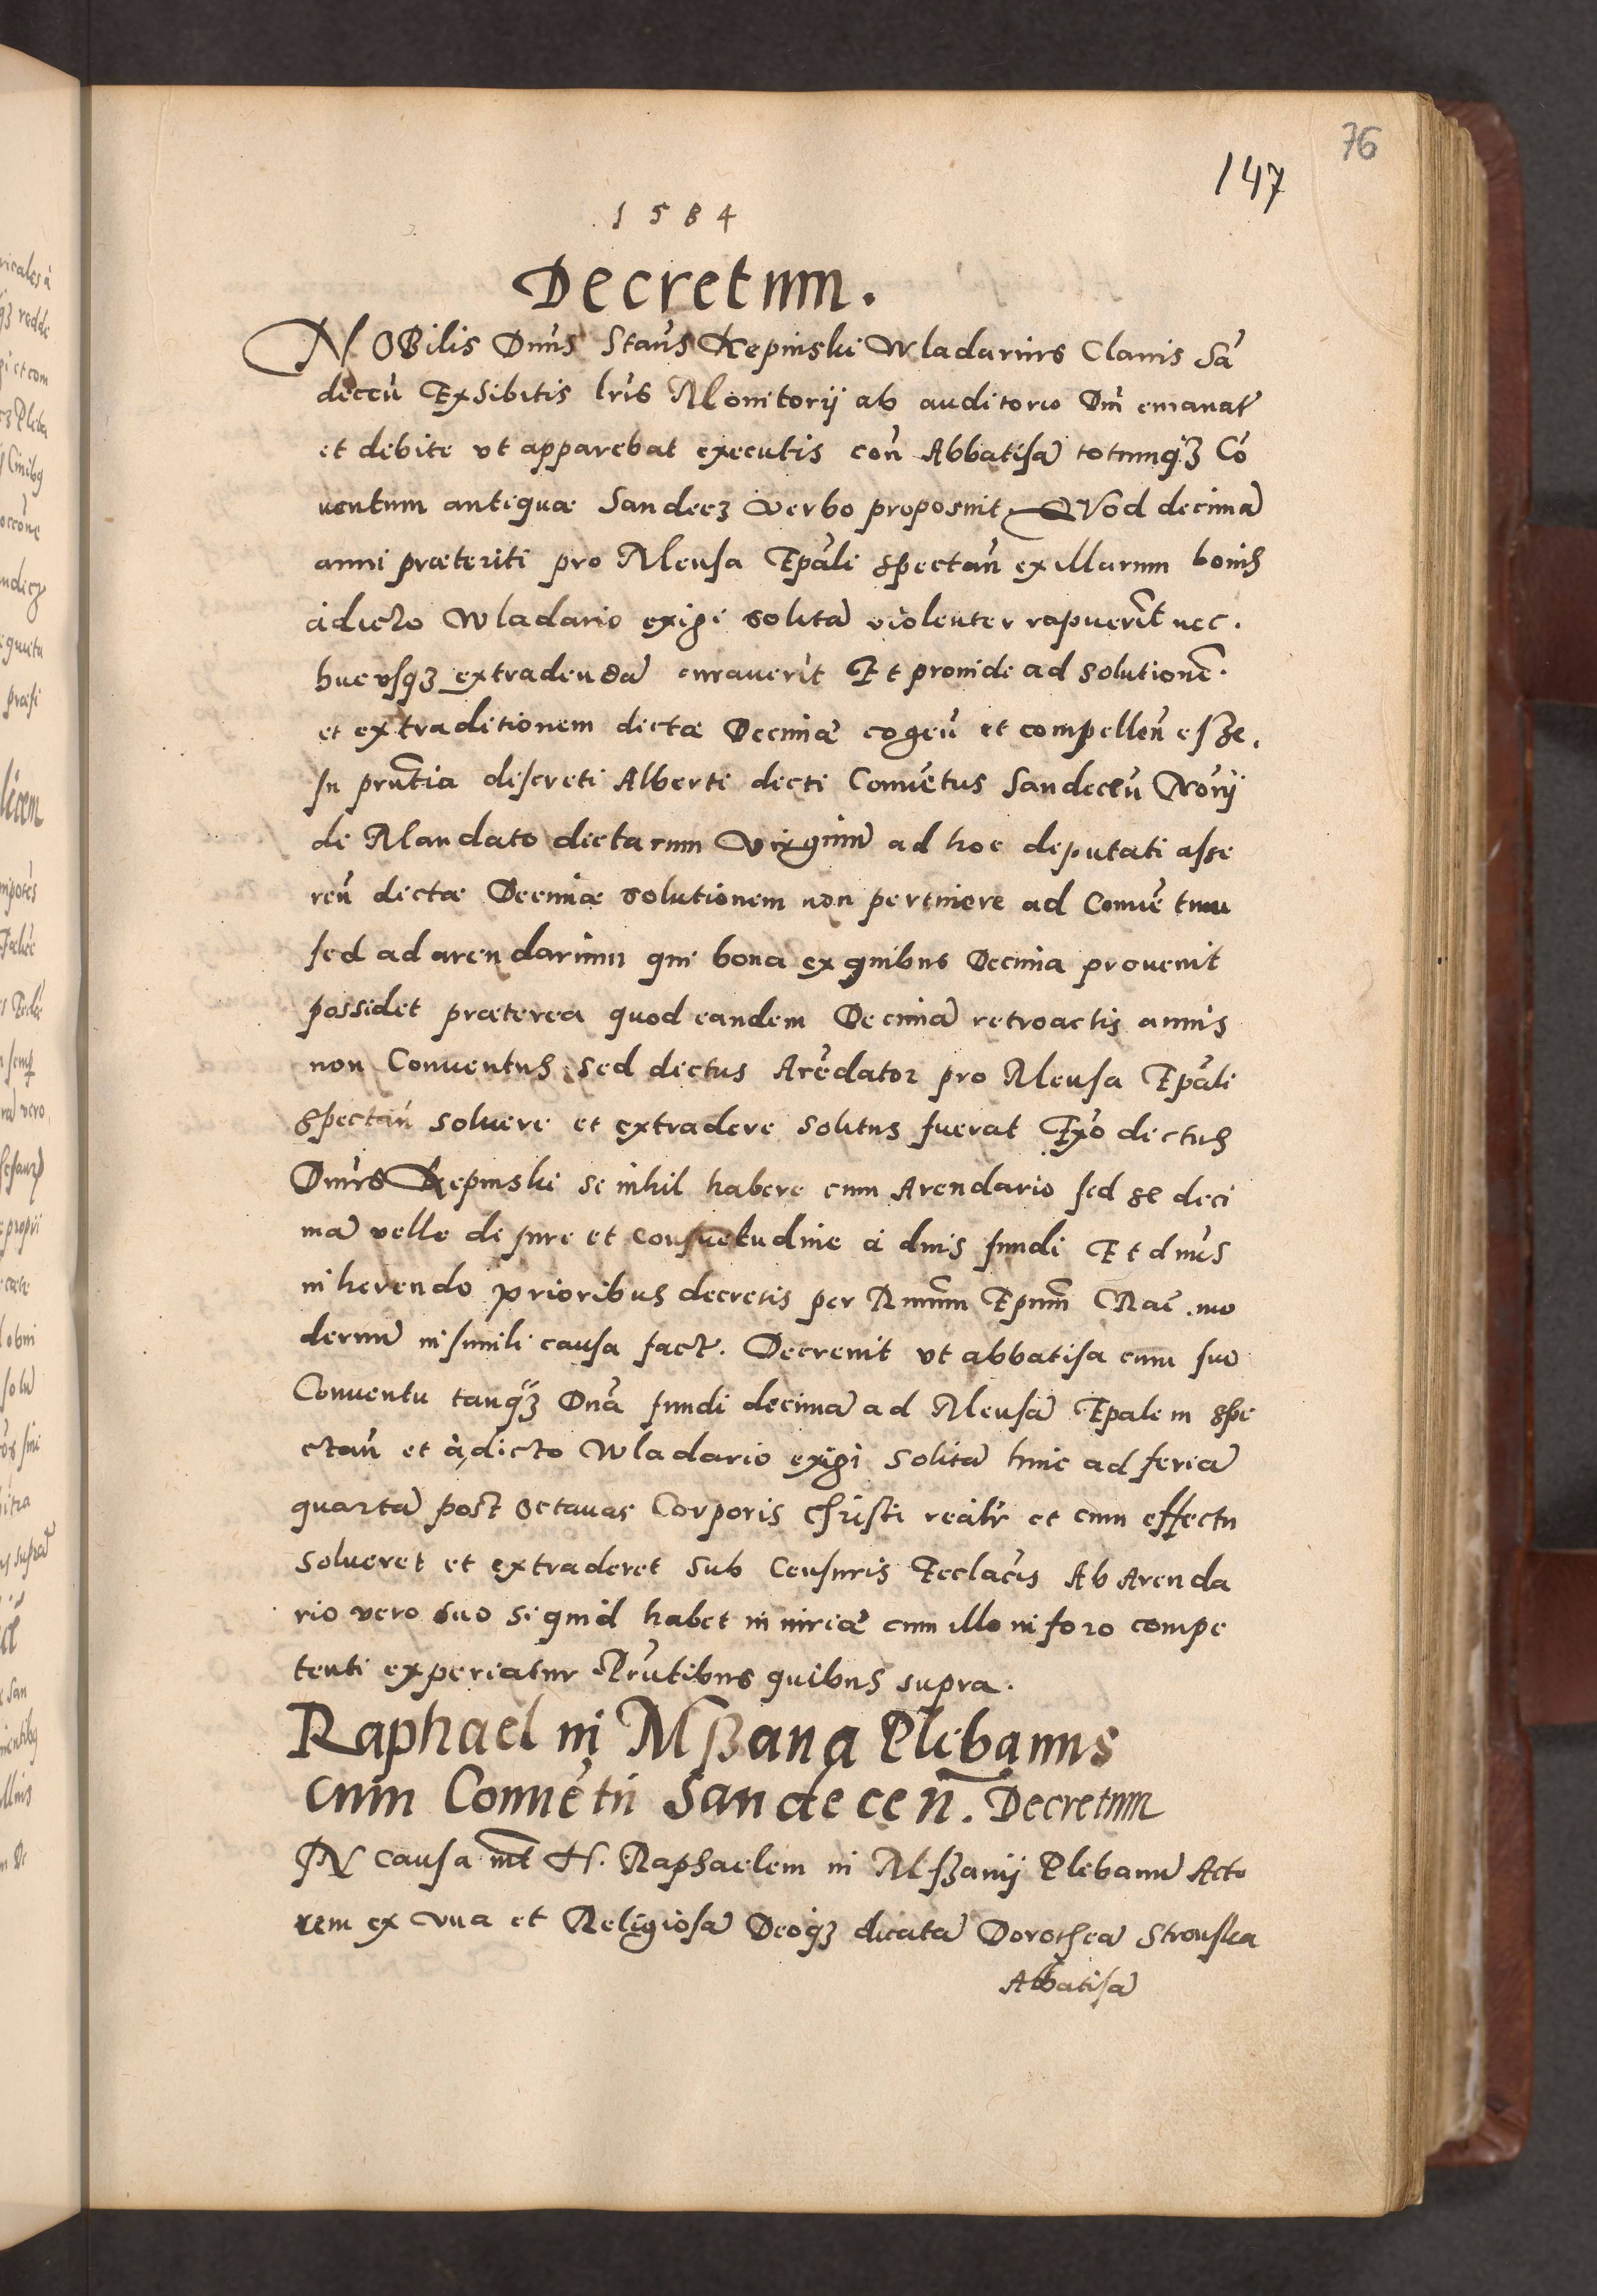 76
147
1584
Decretum.
NOBilis Dnus Staus Repinski Wladarius Clauis Sā
deceń Exhibitis lris Monitorij ab auditorio Dni emanat
et debite vt apparebat executis coń Abbatisā totumq3 Cō
uentum antiquæ Sandecz verbo proposuit, QVod decimā
anni præteriti pro Mensa Epāli spectań ex illarum bonis
à dicto Wladario exigi solitā violenter rapuerīt nec
huc vsq3 extradendā curauerīt Et proinde ad solutionē
et extraditionem dictæ Decimæ cogeń et compelleń esse.
In prñtia discreti Alberti dicti Conuētus Sandeceń Norij
de Mandato dictarum Virginū ad hoc deputati asse
reń dictæ Decimæ solutionem non pertinere ad Conuētum
sed ad arendarium qui bona ex quibus Decima prouenit
possidet præterea quod eandem Decimā retroactis annis
non Conuentus sed dictus Arēdator pro Mensa Epāli
spectań soluere et extradere solitus fuerat Exo dictus
Dnus Repinski se nihil habere cum Arendario sed se deci
mā velle de jure et consuetudine à dnis fundi Et dnus
inherendo prioribus decretis per Rmum Epum Crac̄ mo
dernū in simili causa fact. Decreuit vt abbatisa cum suo
Conuentu tanq3 Dnā fundi decimā ad Mensā Epalem spe
ctań et à dicto Wladario exigi solitā hinc ad feriā
quartā post octauas Corporis christi realr et cum effectu
solueret et extraderet sub Censuris Ecclācis Ab Arenda
rio vero suo si quid habet iniuriæ cum illo in foro compe
tenti experiatur Prñtibus quibus supra.
Raphael in Mßana Plebanus
cum Conuētu Sandeceń. Decretum
IN causa int H. Raphaelem in Mßanij Plebanū Acto
rem ex vna et Religiosā Deoq3 dicatā Dorotheā Stronska
Abbatisā